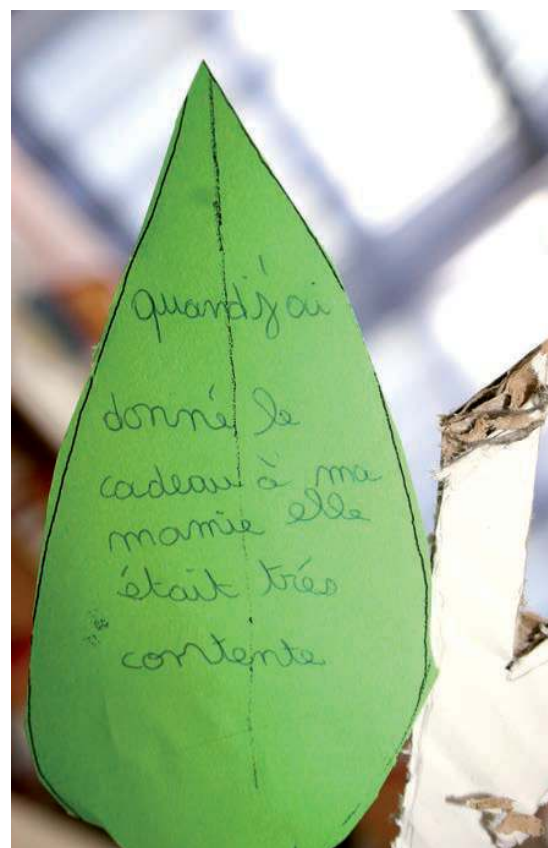 quand j'ai
donné le
cadeau à ma
mamie elle
était trés
contente